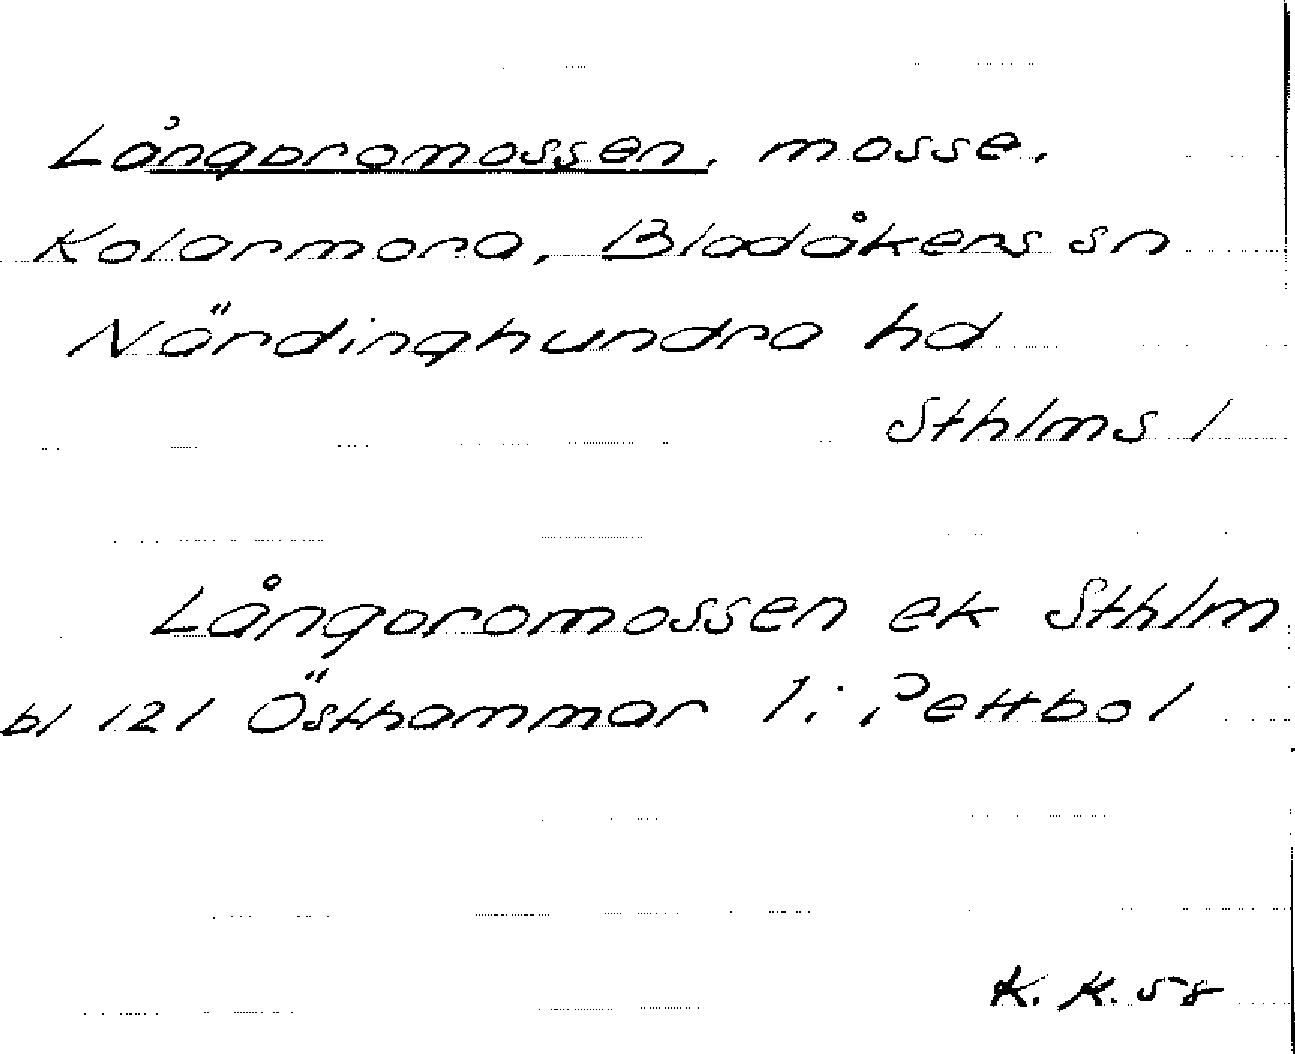 Långoromossen, mosse.
Kolarmora, Bladåkers sn
Närdinghundra hd
Sthlms l
Långoromossen ek Sthlm
bl 121 Östhammar l. i Pettbol
K. K. 58